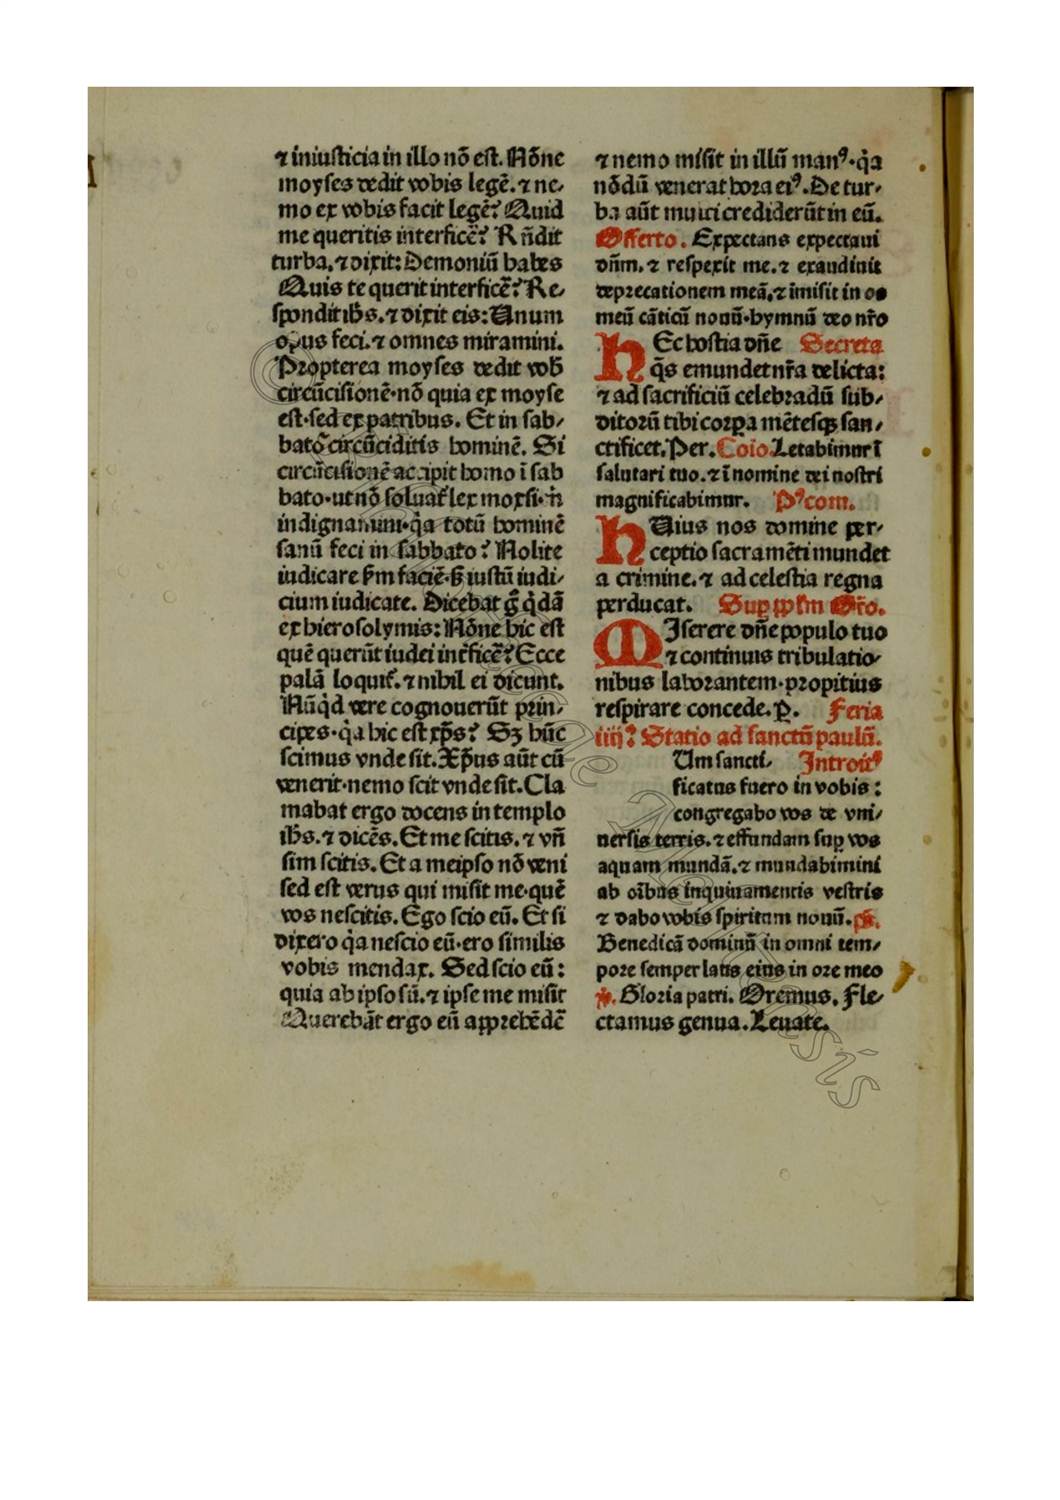 ⁊ iniusticia in illo nō est. Nōne
moyses dedit vobis legē. ⁊ ne⸗
mo ex vobis facit legē? Quid
me queritis interficē? Rñdit
turba. ⁊ dixit: Demoniū habes
Quis te querit interficē? Re⸗
spondit ihs̄. ⁊ dixit eis: Unum
opus feci. ⁊ omnes miramini.
Propterea moyses dedit vob̄
circūcisionē· nō quia ex moyse
est· sed ex patribus. Et in sab⸗
bato circūciditis hominē. Si
circūcisionē accipit homo ī sab
bato· ut nō soluat᷑ lex moysi· m̄
indignamini· q̄a totū hominē
sanū feci in sabbato? Nolite
iudicare s̄m faciē· s̄ iustū iudi⸗
cium iudicate. Dicebāt g̊ q̇dā
ex hierosolymis: Nōne hic est
quē querūt iudei int̄ficē? Ecce
palā loquit᷑. ⁊ nihil ei dicunt.
Nūq̇d vere cognouerūt prin⸗
cipes· q̄a hic est xp̄s? Sꝫ hūc
scimus vnde sit. Xp̄us aūt cū
venerit· nemo scit vnde sit. Cla
mabat ergo docens in templo
ihs̄. ⁊ dicēs. Et me scitis. ⁊ vn̄
sim scitis. Et a meipso nō veni
sed est verus qui misit me· quē
vos nescitis. Ego scio eū. Et si
dixero q̄a nescio eū· ero similis
vobis mendax. Sed scio eū:
quia ab ipso sū. ⁊ ipse me misit
Querebāt ergo eū apprehēdē
⁊ nemo misit in illū manꝰ· q̄a
nōdū venerat hora eiꝰ. De tur⸗
ba aūt multi crediderūt in eū.
Offerto. Expectans expectaui
dn̄m. ⁊ respexit me. ⁊ exaudiuit
deprecationem meā. ⁊ īmisit in os
meū cāticū nouū· hymnū deo nr̄o
HEc hostia dn̄e Secreta
q̄s emundet nr̄a delicta:
⁊ ad sacrificiū celebrādū sub⸗
ditorū tibi corꝑa mētesqꝫ san⸗
ctificet. Per. Coīo. Letabimur ī
salutari tuo. ⁊ ī nomine dei nostri
magnificabimur. Pꝰcom.
HUius nos domine per⸗
ceptio sacramēti mundet
a crimine. ⁊ ad celestia regna
perducat. Suꝑ pp̄lm Or̄o.
MIserere dn̄e populo tuo
⁊ continuis tribulatio⸗
nibus laborantem· propitius
respirare concede. P. Feria
iiij? Statio ad sanctū paulū.
Um sancti⸗ Introitꝰ
ficatus fuero in vobis:
congregabo vos de vni⸗
uersis terris. ⁊ effundam suꝑ vos
aquam mundā. ⁊ mundabimini
ab oībus inquinamentis vestris
⁊ dabo vobis spiritum nouū. ps̄.
Benedicā dominū in omni tem⸗
pore semper laus eius in ore meo
℣. Gloria patri. Oremus. Fle⸗
ctamus genua. Leuate.